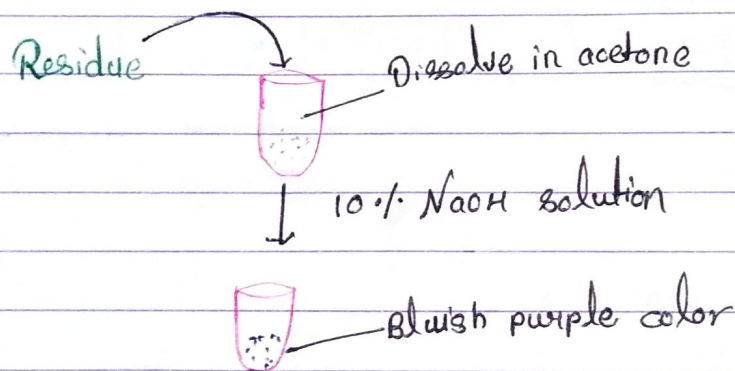 Residue
Dissolve in acetone
10% NaOH solution
Bluish purple color